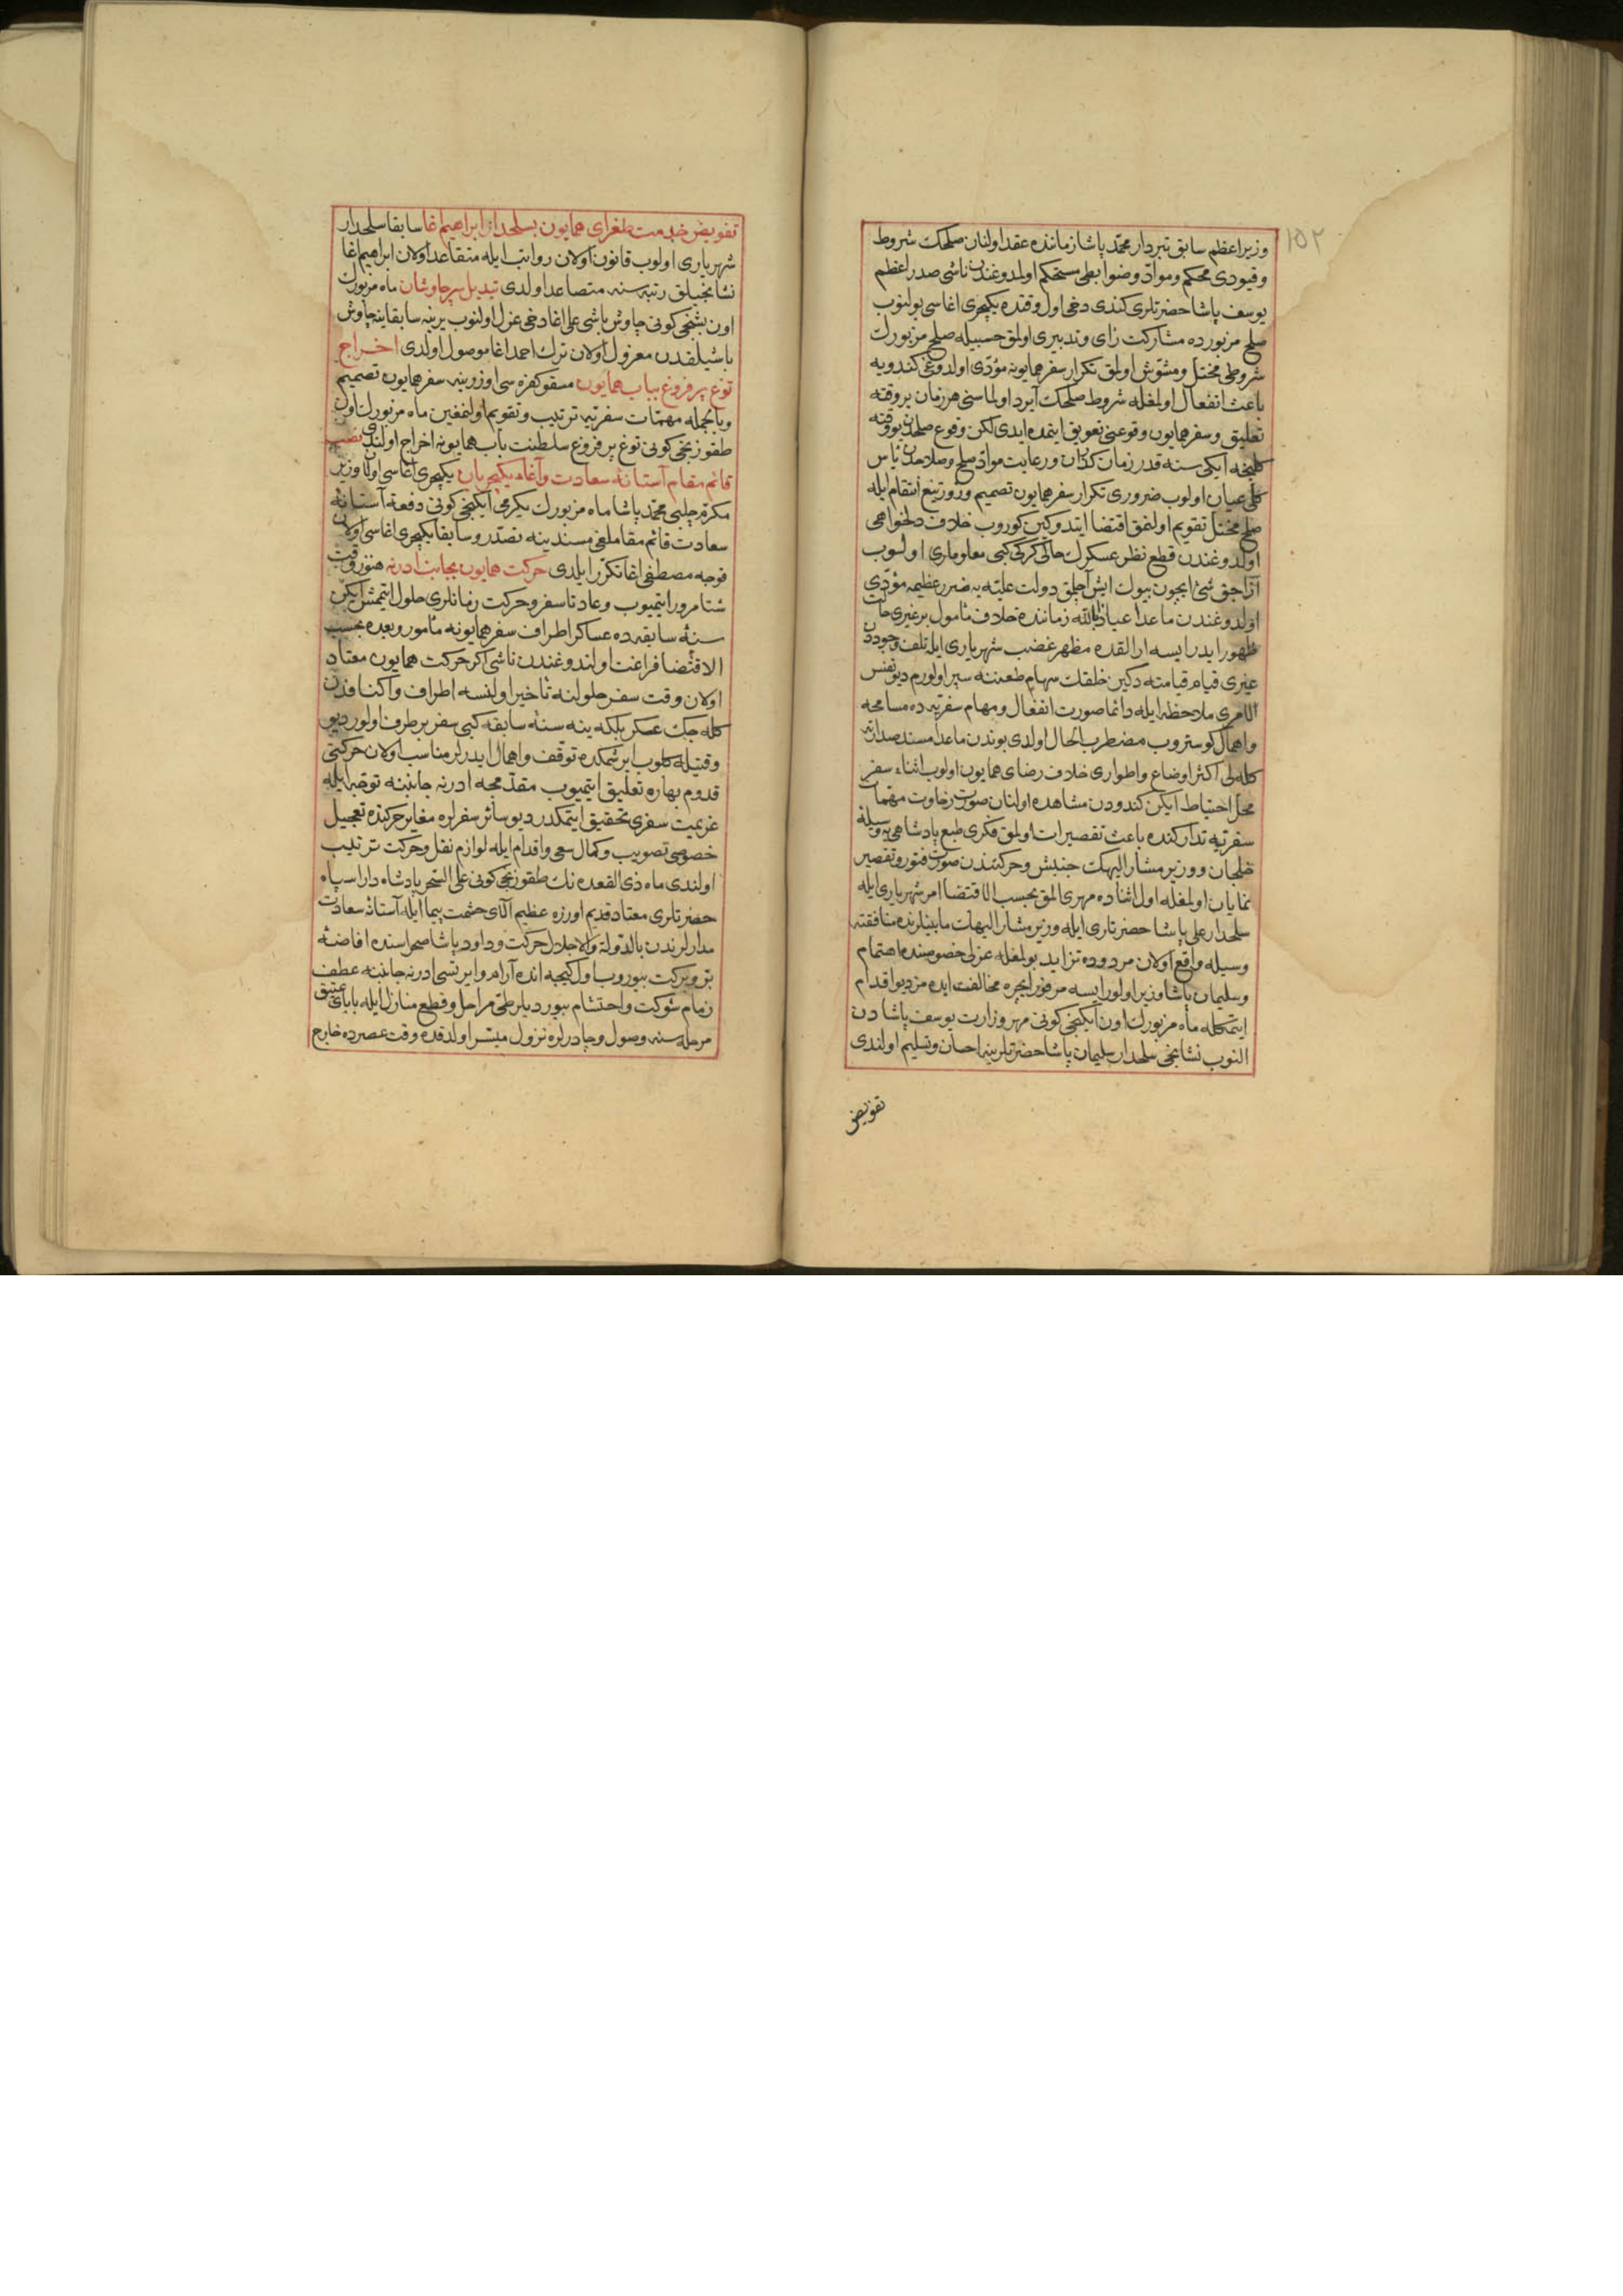 ١٥٢
وزيراعظم سابق تبردار محمّد پاشا زماننده عقد اولنان صلحك شروط
وقيودى محكم وموادّ وضوابطى مستحكم اولمدوغندن ناشى صدراعظم
يوسف پاشا حضرتلرى كندى دخى اول وقتده يكيچرى اغاسى بولنوب
صلح مزبورده مشاركت راى وتدبيرى اولمق حسبيله صلح مزبورك
شروطى مختل ومشوّش اولمق تكرار سفر همايونه مؤدّى اولدوغى كندويه
باعث انفعال اولمغله شروط صلحك آيرد اولماسنى هر زمان بر وقته
تعليق وسفر همايون وقوعنى تعويق ايتمده ايدى لكن وقوع صلحدن بو وقته
كلنجه ايكى سنه قدر زمان كذران ورعايت موادّ صلح وصلاحدن ياس
كلّى عيان اولوب ضرورى تكرار سفر همايون تصميم وزور تيغ انتقام ايله
صلح مختل تقويم اولنمق اقتضا ايتدوكين كوروب خلاف دلخواهى
اولدوغندن قطع نظر عسكرك حالى كركى كبى معلومارى اولوب
آزاجق شئ ايچون بيوك ايش آچلمق دولت عليّه يه ضرر عظيمه مؤدّى
اولدوغندن ماعدا عياذا بالله زماننده خلاف مأمول بر غيرى حالت
ظهور ايدر ايسه ارالقده مظهر غضب شهريارى ايله تلف وجوددن
غيرى قيام قيامته دكين خلقك سهام طعننه سپر اولورم ديو نفس
الامرى ملاحظه ايله دائما صورت انفعال ومهام سفريّه ده مسامحه
واهمال كوستروب مضطرب الحال اولدى بوندن ماعدا مسند صدارته
كله لى اكثر اوضاع واطوارى خلاف رضاى همايون اولوب اثناء سفر
محلّ احتياط ايكن كندودن مشاهده اولنان صورت رخاوت مهمّات
سفريّه تداركنده باعث تقصيرات اولمق فكرى طبع پادشاهى يه وسيلهٔ
خلجان ووزير مشار اليهك جنبش وحركتندن صورت فتور وتقصير
نمايان اولمغله اول اثناده مهرى المق بحسب الاقتضا امر شهريارى ايله
سلحدار على پاشا حضرتلرى ايله وزير مشار اليهك مابينلرنده منافقته
وسيله واقع اولان مردوده تزايد بولمغله عزلى خصوصنده اهتمام
وسليمان پاشا وزير اولور ايسه مرفوز ايچره مخالفت ايده مز ديو اقدام
ايتمكله ماه مزبورك اون ايكنجى كونى مهر وزارت يوسف پاشادن
النوب نشانجى سلحدار سليمان پاشا حضرتلرينه احسان وتسليم اولندى
تفويض
تفويض خدمت طغراى همايون بسلحدار ابراهيم اغا سابقا سلحدار
شهريارى اولوب قانون اولان رواتب ايله متقاعد اولان ابراهيم اغا
نشانجيلق رتبه سنه متصاعد اولدى تبديل سرچاوشان ماه مزبورك
اون بشنجى كونى چاوش باشى على اغا دخى عزل اولنوب يرينه سابقا ينه چاوش
باشيلقدن معزول اولان ترك احمد اغا موصول اولدى اخراج
توغ پر فروغ بباب همايون مسقو كفره سى اوزرينه سفر همايون تصميم
وبالجمله مهمّات سفريّه ترتيب وتقويم اولنمغين ماه مزبورك اون
طقوزنجى كونى توغ پر فروغ سلطنت باب همايونه اخراج اولندى نصب
قائم مقام آستانهٔ سعادت وآغاء يكيچريان يكيچرى اغاسى اولان وزير
مكرّم چلبى محمّد پاشا ماه مزبورك يكرمى ايكنجى كونى دفعة آستانهٔ
سعادت قائم مقاملغى مسندينه تصدّر وسابقا يكيچرى اغاسى اولان
قوجه مصطفى اغا تكرّر ايلدى حركت همايون بجانب ادرنه هنوز وقت
شتا مرور ايتميوب وعادتا سفر وحركت زمانلرى حلول ايتمش ايكن
سنهٔ سابقه ده عساكر اطراف سفر همايونه مأمور وبعده بحسب
الاقتضا فراغت اولندوغندن ناشى اكر حركت همايون معتاد
اولان وقت سفر حلولنه تأخير اولنسه اطراف واكنافدن
كله جك عسكر بلكه ينه سنهٔ سابقه كبى سفر برطرف اولور ديو
وقتيله كلوب ايرشمكده توقف واهمال ايدرلر مناسب اولان حركتى
قدوم بهاره تعليق ايتميوب مقدّمجه ادرنه جانبنه توجّه ايله
عزيمت سفرى تحقيق ايتمكدر ديو سائر سفرلره مغاير حركتده تعجيل
خصوصى تصويب وكمال سعى واقدام ايله لوازم نقل وحركت ترتيب
اولندى ماه ذى القعده نك طقوزنجى كونى على السّحر پادشاه دارا سپاه
حضرتلرى معتاد قديم اوزره عظيم آلاى حشمت پيما ايله آستانهٔ سعادت
مدارلرندن بالدّولة والاجلال حركت وداود پاشا صحراسنده افاضهٔ
يمن وبركت بيوروب اول كيجه انده آرام وايرتسى ادرنه جانبنه عطف
زمام شوكت واحتشام بيورديلر طىّ مراحل وقطع منازل ايله باباى عتيق
مرحله سنه وصول وچادرلره نزول ميسّر اولدقده وقت عصرده خارج